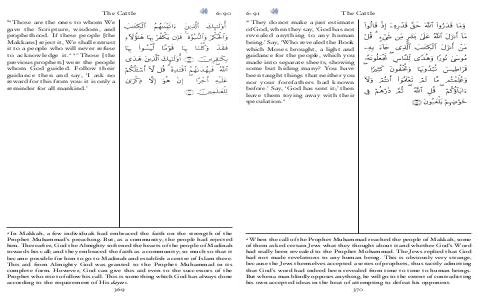 The Cattle
6:90
⁸⁹ Those are the ones to whom We
gave the Scripture, wisdom, and
prophethood. If these people [the
Makkans] reject it, We shall entrust
it to a people who will never refuse
to acknowledge it. ⁹⁰ Those [the
previous prophets] were the people
whom God guided. Follow their
guidance then and say, 'I ask no
reward for this from you: it is only a
reminder for all mankind.'
أُولَٰئِكَ الَّذِينَ ءَاتَيْنَٰهُمُ الْكِتَٰبَ
وَالْحُكْمَ وَالنُّبُوَّةَ فَإِن يَكْفُرْ بِهَا هَٰؤُلَاءِ
فَقَدْ وَكَّلْنَا بِهَا قَوْمًا لَّيْسُوا بِهَا
بِكَٰفِرِينَ أُولَٰئِكَ الَّذِينَ هَدَى
اللَّهُ فَبِهُدَىٰهُمُ اقْتَدِهْ قُل لَّا أَسْـَٔلُكُمْ
عَلَيْهِ أَجْرًا إِنْ هُوَ إِلَّا ذِكْرَىٰ
لِلْعَٰلَمِينَ
ᵃ In Makkah, a few individuals had embraced the faith on the strength of the
Prophet Muhammad's preaching. But, as a community, the people had rejected
him. Thereafter, God the Almighty softened the hearts of the people of Madinah
towards his call and they embraced the faith as a community; so much so that it
became possible for him to go to Madinah and establish a centre of Islam there.
This aid from Almighty God was granted to the Prophet Muhammad in its
complete form. However, God can give this aid even to the successors of the
Prophet who rise to follow his call. This is something which God has always done
according to the requirement of His dayee.
369
6:91
The Cattle
⁹¹ They do not make a just estimate
of God, when they say, 'God has not
revealed anything to any human
being.' Say, 'Who revealed the Book
which Moses brought, a light and
guidance for the people, which you
made into separate sheets, showing
some but hiding many? You have
been taught things that neither you
nor your forefathers had known
before.' Say, 'God has sent it;' then
leave them toying away with their
speculation.ᵃ
وَمَا قَدَرُوا اللَّهَ حَقَّ قَدْرِهِ إِذْ قَالُوا
مَا أَنزَلَ اللَّهُ عَلَىٰ بَشَرٍ مِّن شَيْءٍ قُلْ
مَنْ أَنزَلَ الْكِتَٰبَ الَّذِي جَاءَ بِهِ
مُوسَىٰ نُورًا وَهُدًى لِّلنَّاسِ تَجْعَلُونَهُ
قَرَاطِيسَ تُبْدُونَهَا وَتُخْفُونَ كَثِيرًا
وَعُلِّمْتُم مَّا لَمْ تَعْلَمُوا أَنتُمْ وَلَا
ءَابَاؤُكُمْ قُلِ اللَّهُ ثُمَّ ذَرْهُمْ فِي
خَوْضِهِمْ يَلْعَبُونَ
ᵃ When the call of the Prophet Muhammad reached the people of Makkah, some
of them asked certain Jews what they thought about it and whether God's Word
had really been revealed to the Prophet Muhammad. The Jews replied that God
had not made revelations to any human being. This is obviously very strange,
because the Jews themselves accepted a series of prophets, thus tacitly admitting
that God's word had indeed been revealed from time to time to human beings.
But when a man blindly opposes anything, he will go to the extent of contradicting
his own accepted ideas in the heat of attempting to defeat his opponent.
370